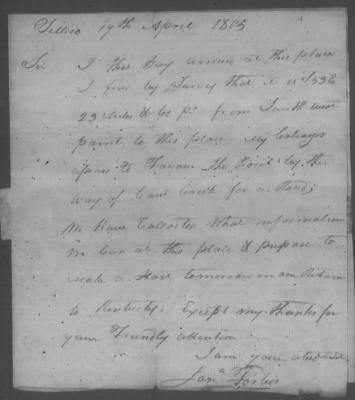 Tellico 19th April 1805
Sir I this Day arrived at this place
I find by Survey that it is S 53 E
23 Miles & 60 ps from South west
point to this place - My Colleagues
appear to Favour the Point by the
way of Cany Creek for a Road;
We Have Collected What information
We Can at this place & propose to
make a start tomorrow on our Return
to Kentucky. Except my thanks for
your Friendly attention
I am your
Jona Forbis